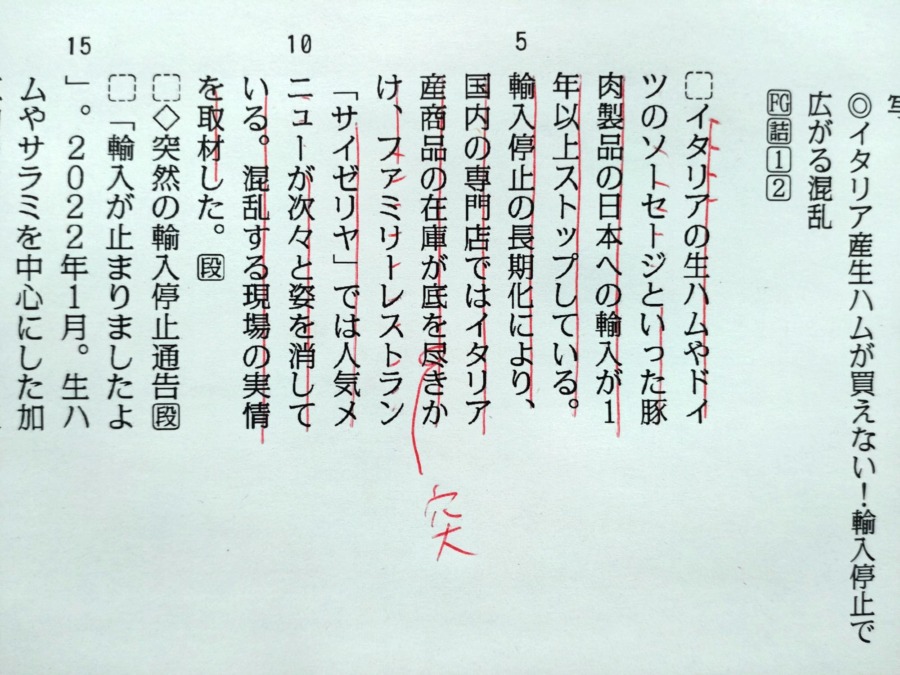 ◎イタリア産生ハムが買えない！輸入停止で
広がる混乱
FG詰12
イタリアの生ハムやドイ
ツのソーセージといった豚
肉製品の日本への輸入が1
年以上ストップしている。
5
輸入停止の長期化により、
国内の専門店ではイタリア
産商品の在庫が底を尽きか
突
け、ファミリーレストラン
「サイゼリヤ」では人気メ
10
ニューが次々と姿を消して
いる。混乱する現場の実情
を取材した。段
◇突然の輸入停止通告段
「輸入が止まりましたよ
15
」。2022年1月。生ハ
ムやサラミを中心にした加